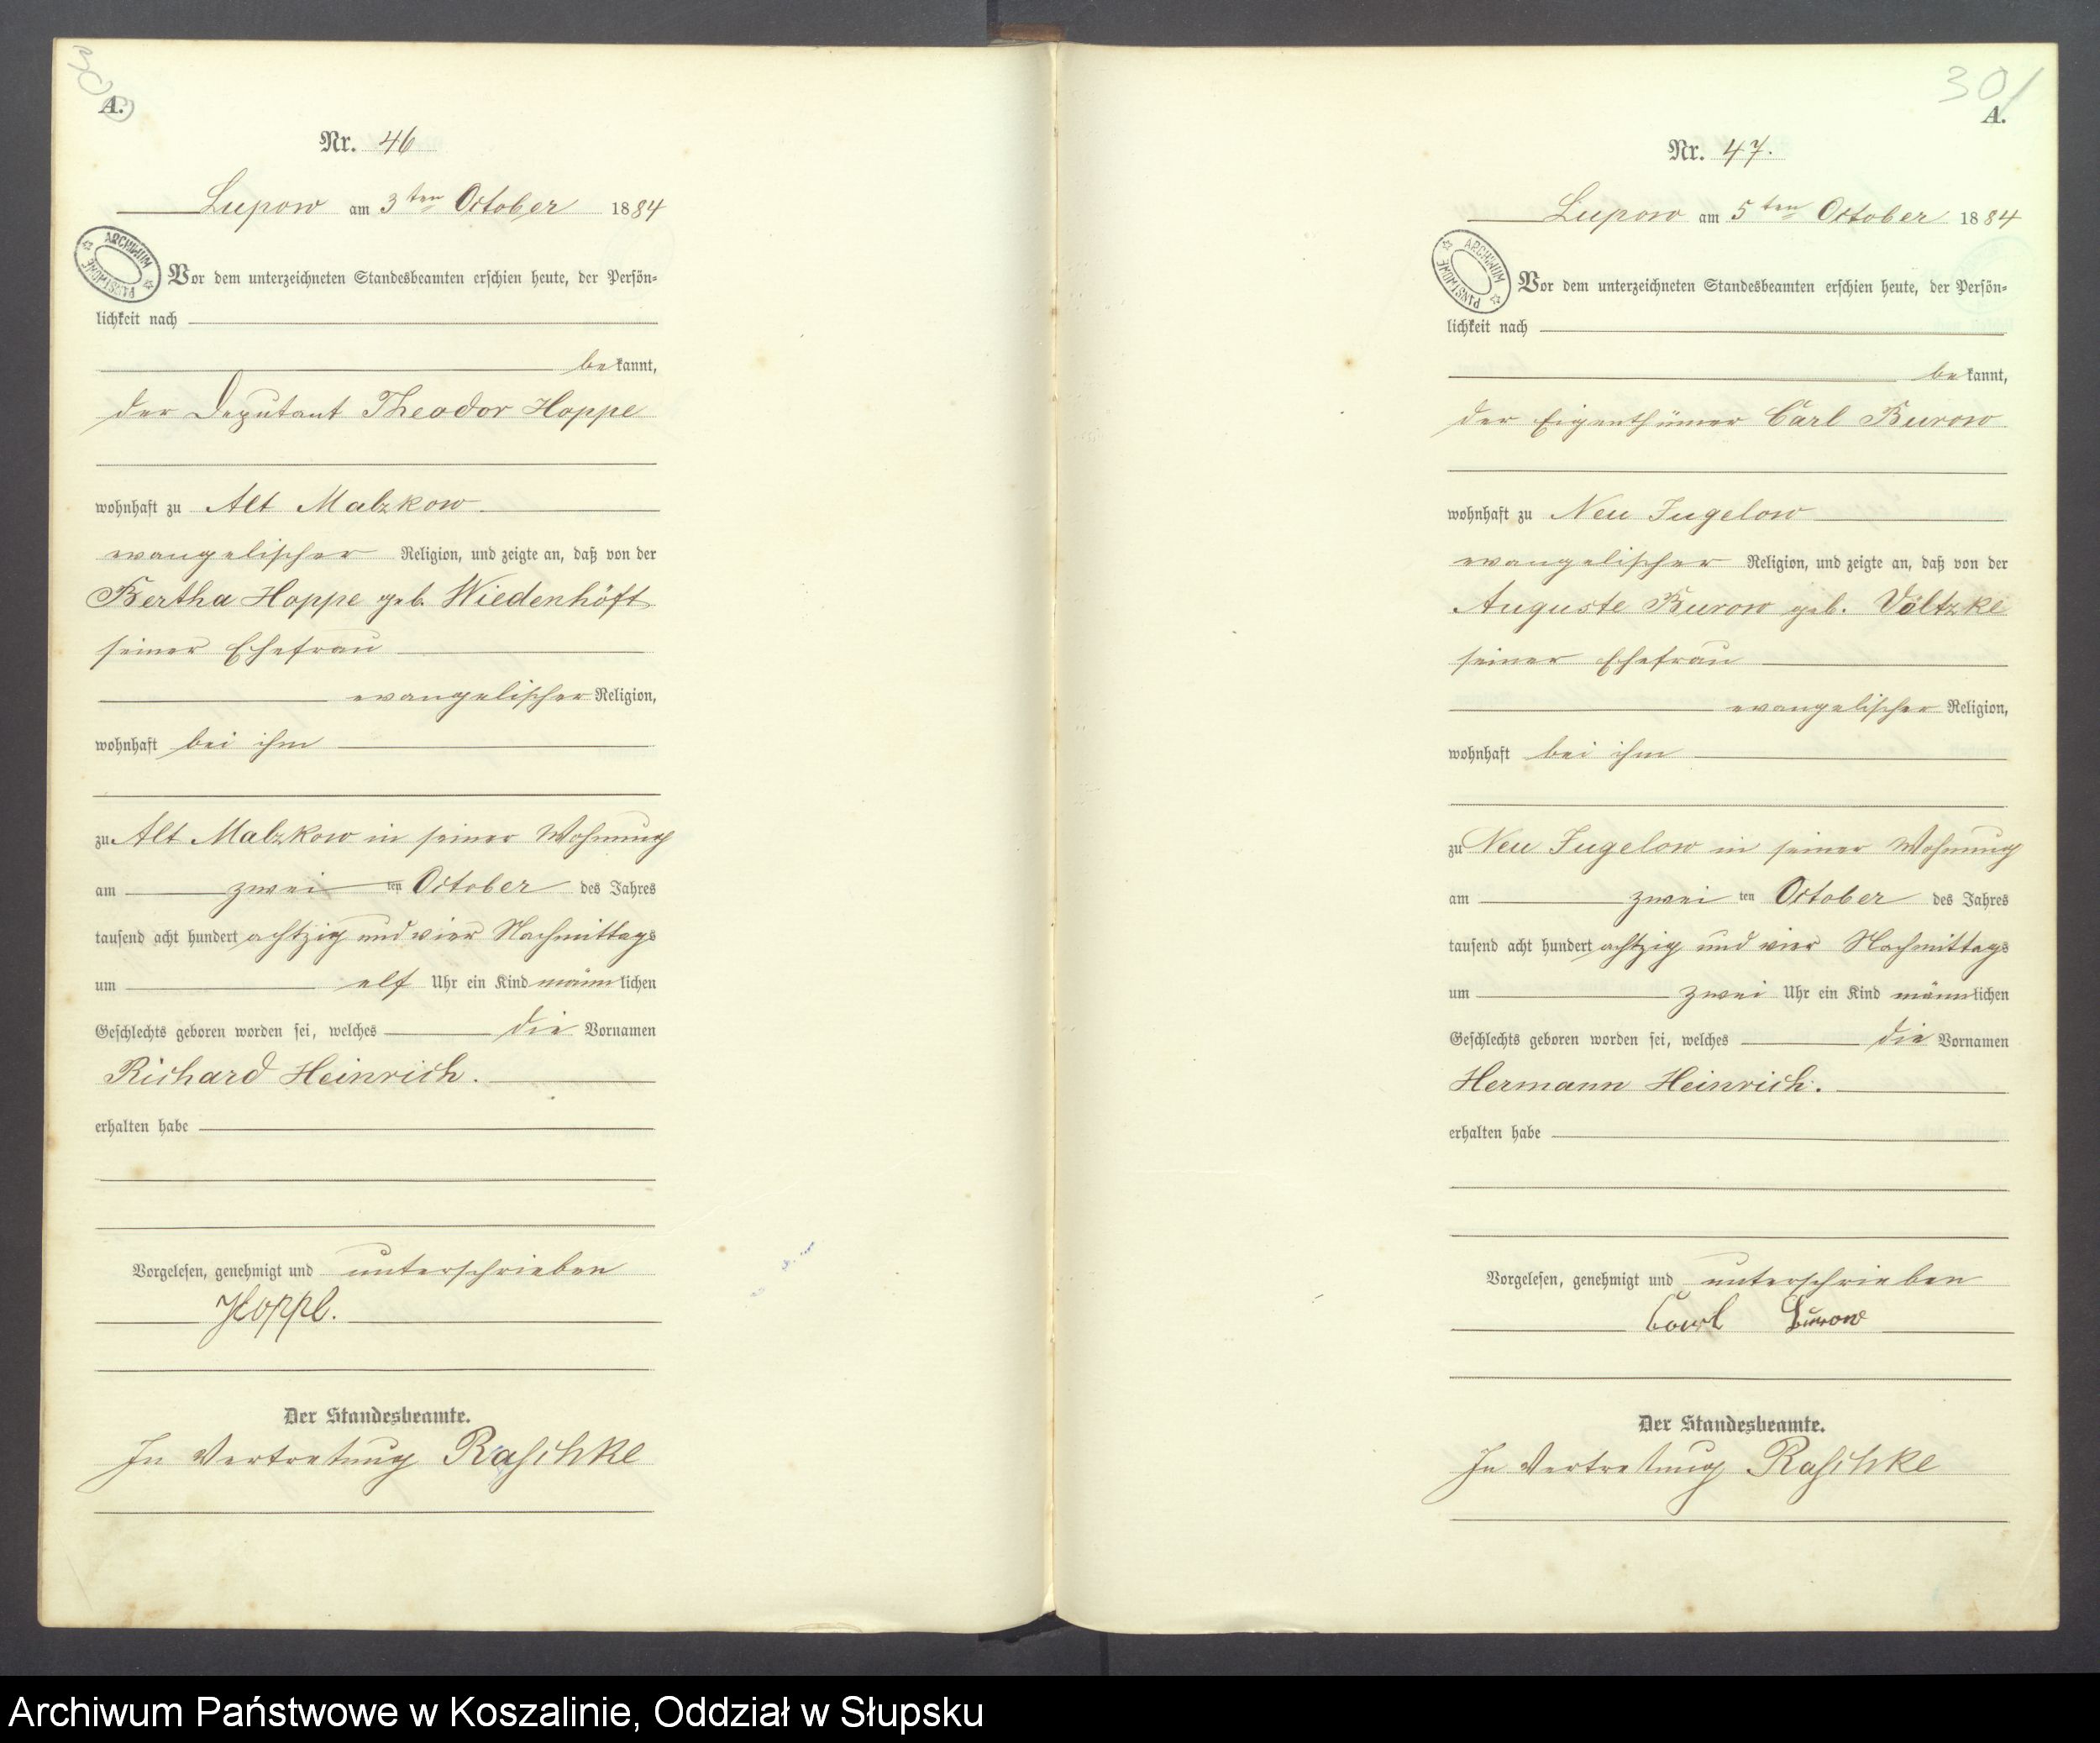 300
A.
Nr. 46
Lupow am 3ten October 1884
ARCHIWUM PAŃSTWOWE
Vor dem unterzeichneten Standesbeamten erschien heute, der Persön-
lichkeit nach
bekannt,
der Deputant Theodor Hoppe
wohnhaft zu Alt Malzkow
evangelischer Religion, und zeigte an, daß von der
Bertha Hoppe geb. Wiedenhöft
seiner Ehefrau
evangelischer Religion,
wohnhaft bei ihm
zu Alt Malzkow in seiner Wohnung
am zwei ten October des Jahres
tausend acht hundert achtzig und vier Nachmittags
um elf Uhr ein Kind männlichen
Geschlechts geboren worden sei, welches die Vornamen
Richard Heinrich.
erhalten habe
Vorgelesen, genehmigt und unterschrieben
Hoppe.
Der Standesbeamte.
In Vertretung Raschke
301
A.
Nr. 47.
Lupow am 5ten October 1884
ARCHIWUM PAŃSTWOWE
Vor dem unterzeichneten Standesbeamten erschien heute, der Persön-
lichkeit nach
bekannt,
der Eigenthümer Carl Burow
wohnhaft zu Neu Jugelow
evangelischer Religion, und zeigte an, daß von der
Auguste Burow geb. Völtzke
seiner Ehefrau
evangelischer Religion,
wohnhaft bei ihm
zu Neu Jugelow in seiner Wohnung
am zwei ten October des Jahres
tausend acht hundert achtzig und vier Nachmittags
um zwei Uhr ein Kind männlichen
Geschlechts geboren worden sei, welches die Vornamen
Hermann Heinrich.
erhalten habe
Vorgelesen, genehmigt und unterschrieben
Carl Burow
Der Standesbeamte.
In Vertretung Raschke
Archiwum Państwowe w Koszalinie, Oddział w Słupsku